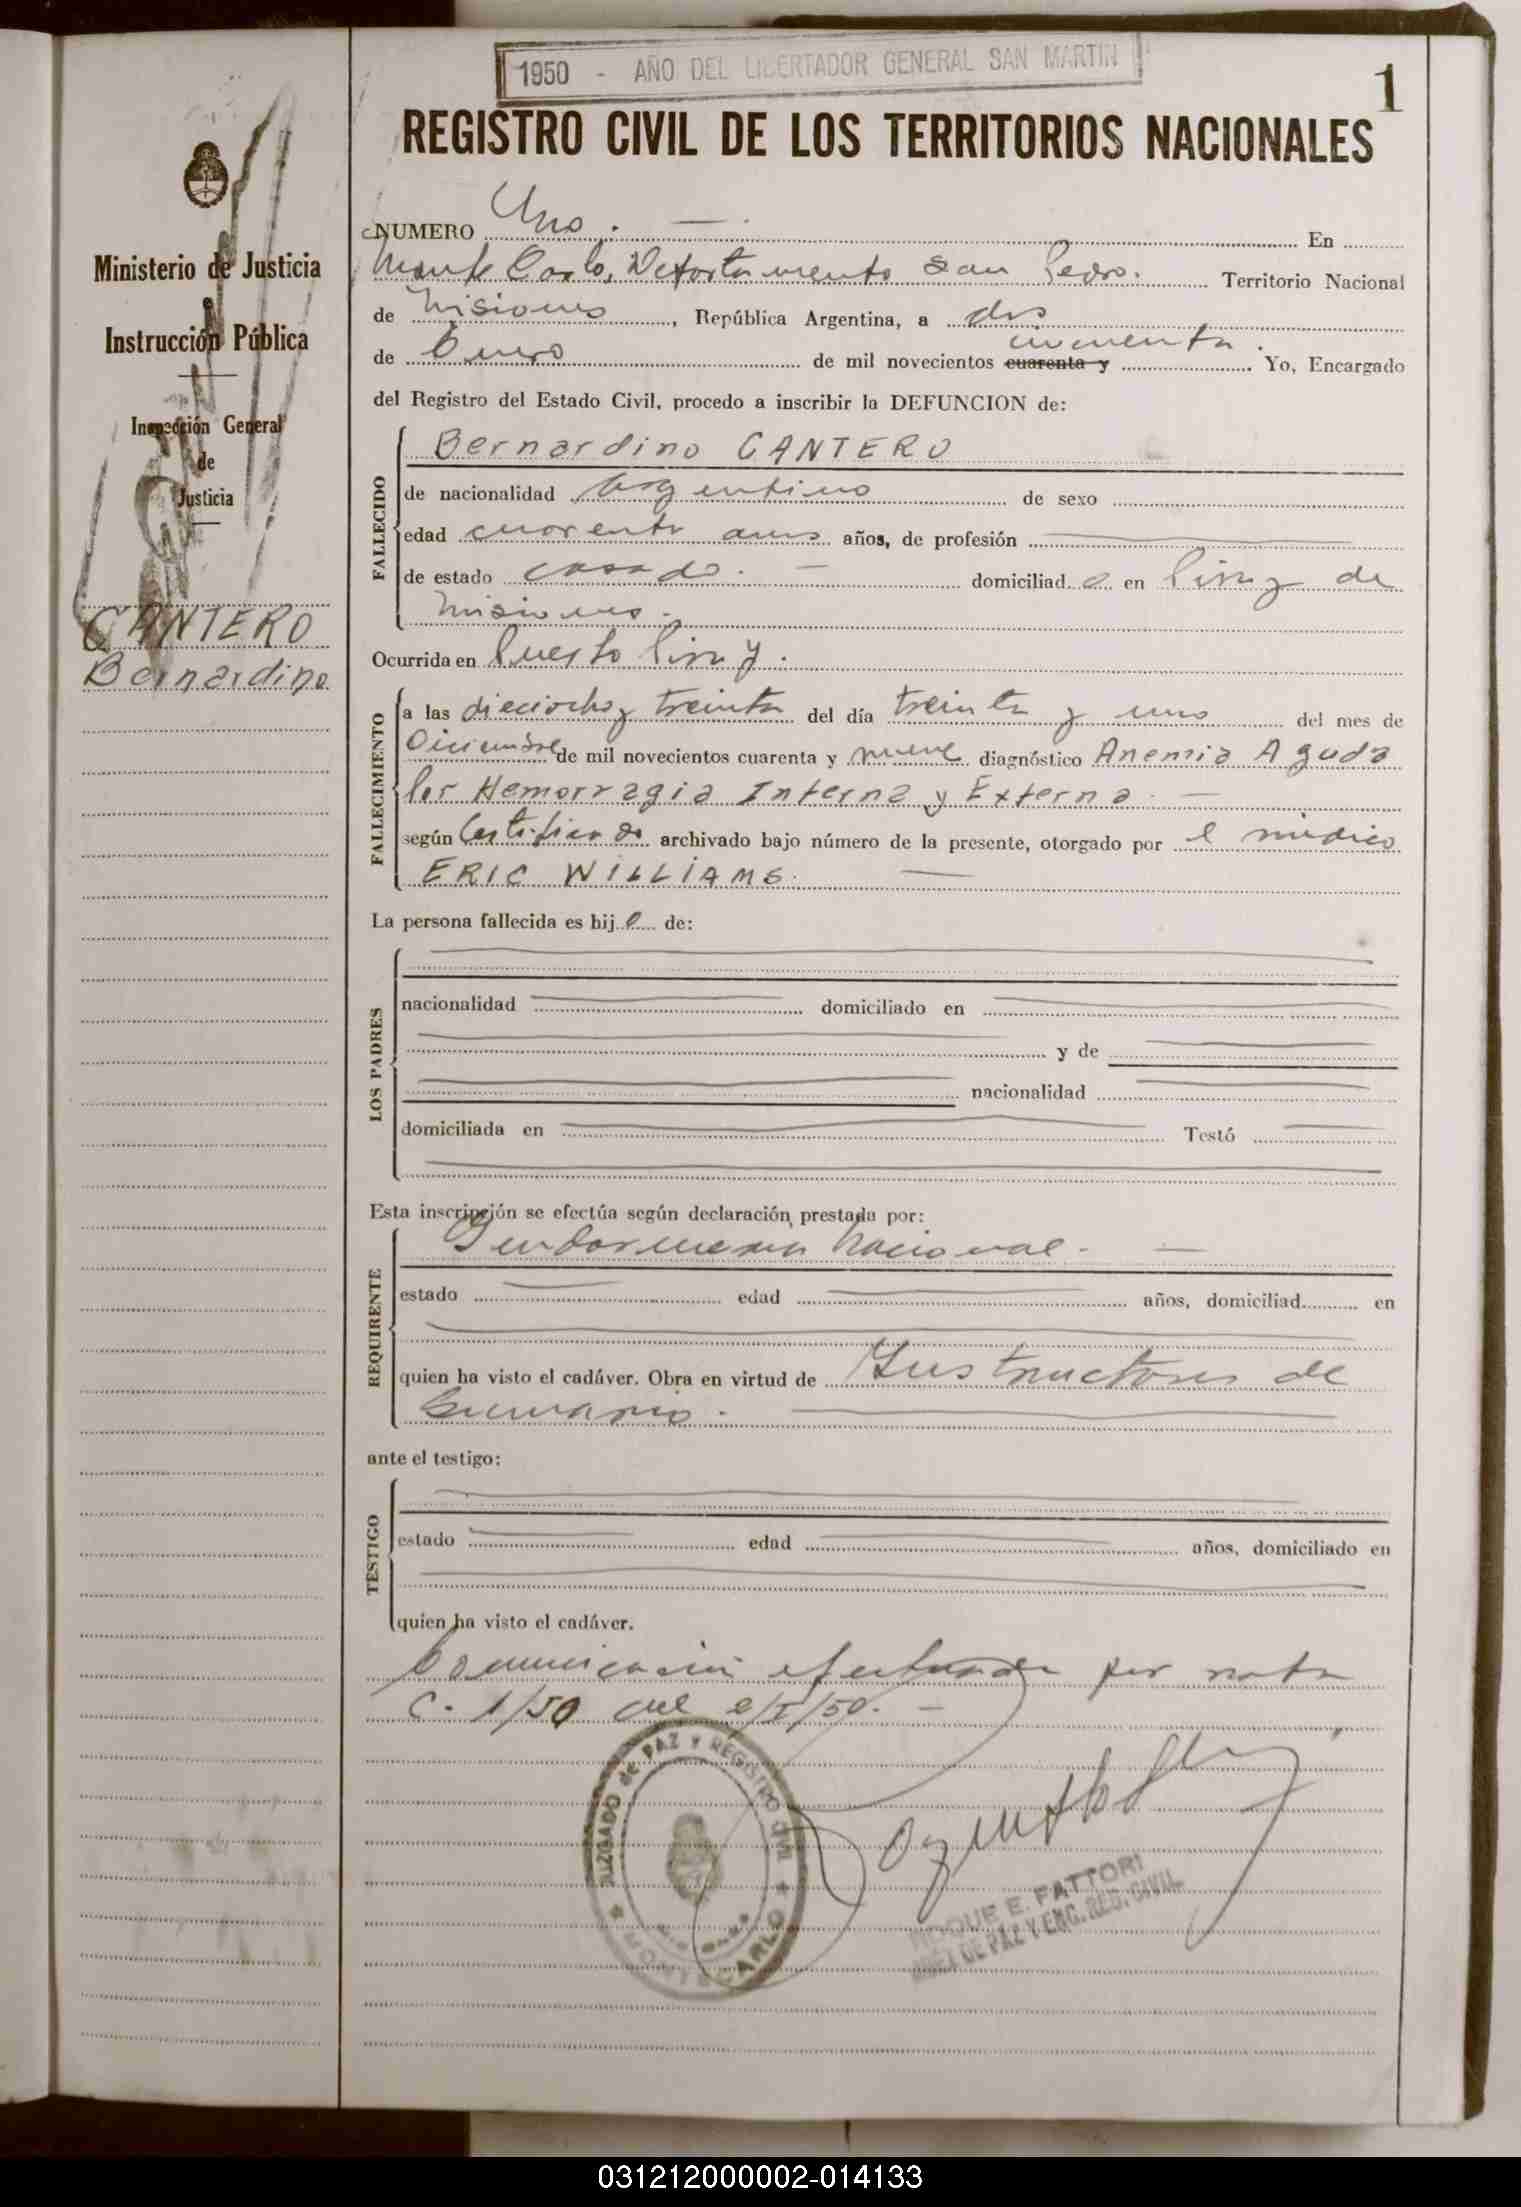 1950 - AÑO DEL LIBERTADOR GENERAL SAN MARTIN
1
REGISTRO CIVIL DE LOS TERRITORIOS NACIONALES
Ministerio de Justicia
Instrucción Pública
Inspección General
de
Justicia
CANTERO
Bernardino
NUMERO Uno. — En
Monte Carlo, Departamento San Pedro. Territorio Nacional
de Misiones, República Argentina, a dos
de Enero de mil novecientos cuarenta y cincuenta. Yo, Encargado
del Registro del Estado Civil, procedo a inscribir la DEFUNCION de:
FALLECIDO
Bernardino CANTERO
de nacionalidad Argentino de sexo
edad cuarenta años años, de profesión
de estado casado. — domiciliad o en Piray de
Misiones.
Ocurrida en Puerto Piray.
FALLECIMIENTO
a las dieciocho y treinta del día treinta y uno del mes de
Diciembre de mil novecientos cuarenta y nueve diagnóstico Anemia Aguda
Por Hemorragia Interna y Externa. —
según Certificado archivado bajo número de la presente, otorgado por el médico
ERIC WILLIAMS. —
La persona fallecida es hij o de:
LOS PADRES
nacionalidad domiciliado en
y de
nacionalidad
domiciliada en Testó
Esta inscripción se efectúa según declaración prestada por:
REQUIRENTE
Gendarmeria Nacional. —
estado edad años, domiciliad en
quien ha visto el cadáver. Obra en virtud de Instructores de
Sumario.
ante el testigo:
TESTIGO
estado edad años, domiciliado en
quien ha visto el cadáver.
Comunicación efectuada por nota
C. 1/50 del 2/I/50. —
JUZGADO de PAZ Y REGISTRO CIVIL
MONTECARLO
ROQUE E. FATTORI
JUEZ DE PAZ Y ENC. REG. CIVIL
031212000002-014133